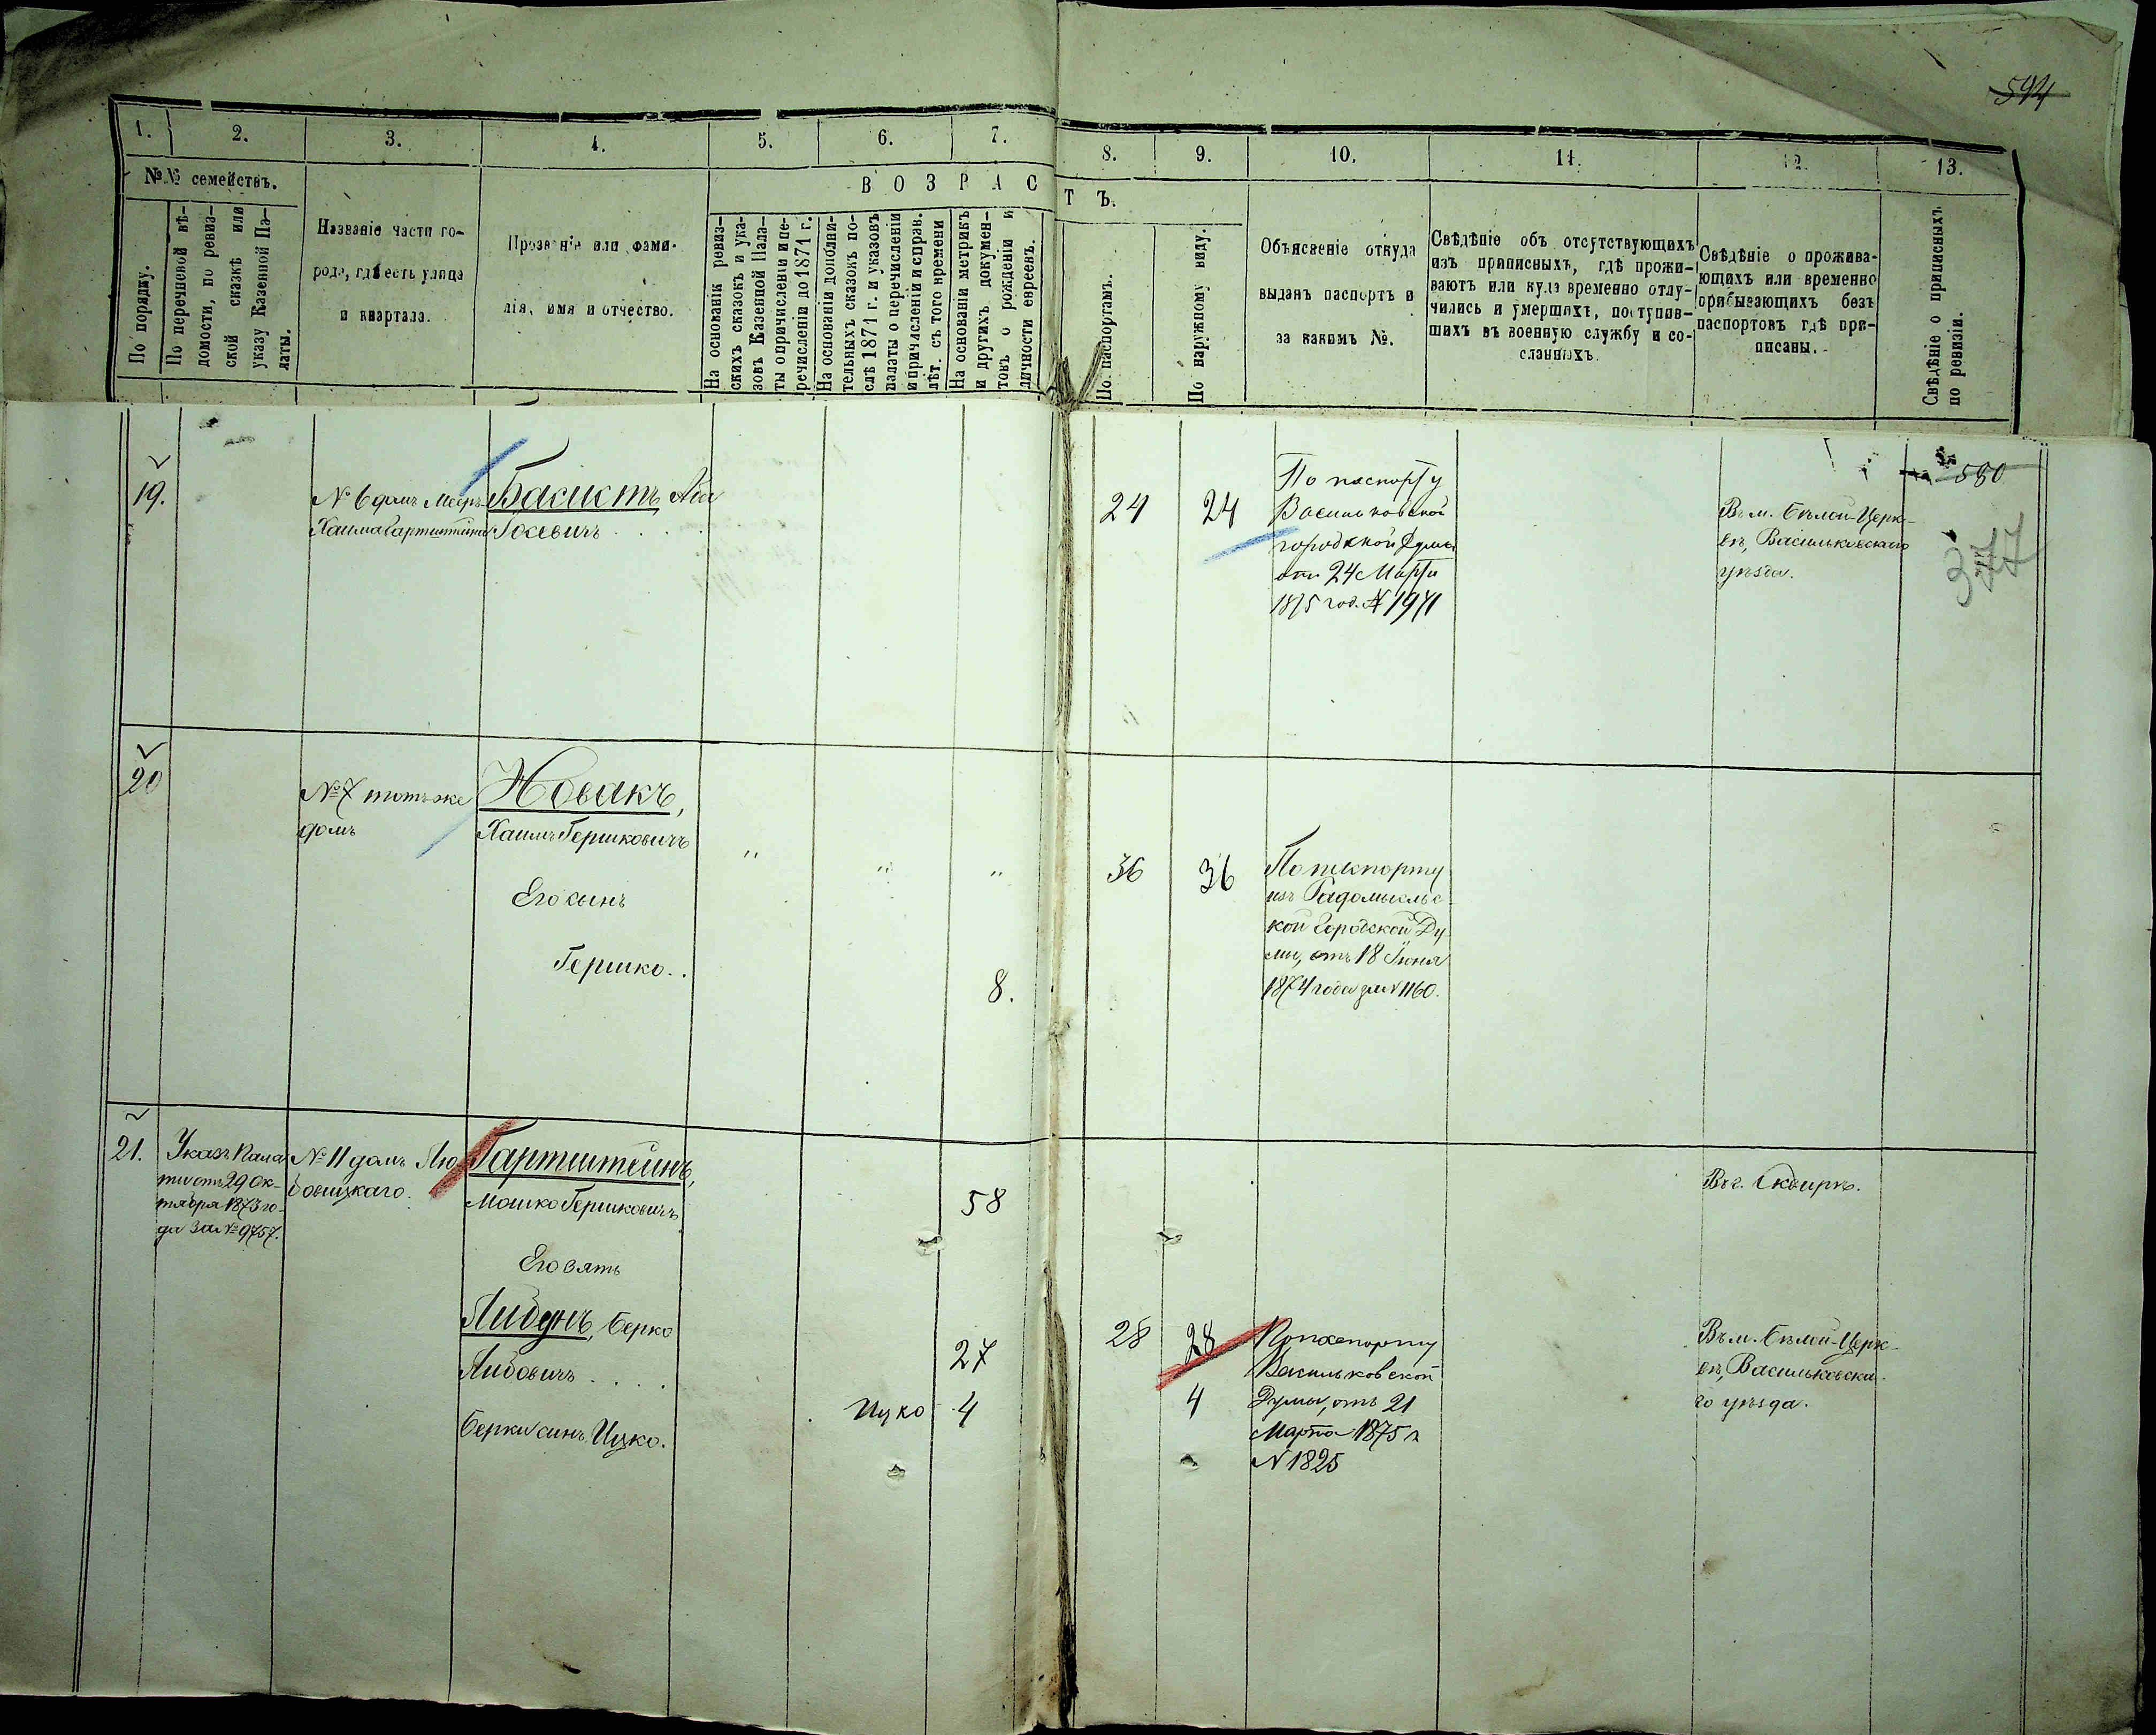 594
1. 2. 3. 4. 5. 6. 7. 8. 9. 10. 11. 12. 13.
№№ семействъ.
По порядку.
По перечневой вѣ-
домости, по ревиз-
ской сказкѣ или
указу Казенной Па-
латы.
Названіе части го-
рода, гдѣ есть улица
и квартала.
Прозваніе или фами-
лія, имя и отчество.
ВОЗРАСТЪ.
На основаніи ревиз-
скихъ сказокъ и ука-
зовъ Казенной Пала-
ты о причисленіи и пе-
речисленіи до 1871 г.
На основаніи дополни-
тельныхъ сказокъ по-
слѣ 1871 г. и указовъ
палаты о перечисленіи
и причисленіи и справ.
лѣт. съ того времени
На основаніи метрикъ
и другихъ докумен-
товъ о рожденіи и
личности евреевъ.
По паспортамъ.
По наружному виду.
Объясненіе откуда
выданъ паспортъ и
за какимъ №.
Свѣдѣніе объ отсутствующихъ
изъ приписныхъ, гдѣ прожи-
ваютъ или куда временно отлу-
чились и умершихъ, поступив-
шихъ въ военную службу и со-
сланныхъ.
Свѣдѣніе о прожива-
ющихъ или временно
прибывающихъ безъ
паспортовъ гдѣ при-
писаны.
Свѣдѣніе о приписныхъ
по ревизіи.
580
377
19.
№ 6 домъ Мееръ
Хаима Гартштейна
Басистъ, Аба
Іосевичъ . . . .
24
24
По паспорту
Васильковской
городской Думы
отъ 24 Марта
1875 год. № 1971
Въ м. Бѣлой-Церк-
вѣ, Васильковскаго
уѣзда.
20
№ 7 тотъ же
домъ
Новакъ,
Хаимъ Гершковичъ
" " "
36
36
Его сынъ
Гершко..
8.
По паспорту
изъ Радомысльс-
кой Городской Ду-
мы, отъ 18 Іюня
1874 года за № 1160.
21.
Указъ Пала-
ты отъ 29 Ок-
тября 1875 го-
да за № 9757.
№ 11 домъ Лю-
бовицкаго.
Гартштейнъ,
Мошко Гершковичъ
58
Въ г. Сквиркѣ.
Его зять
Берко
Либовичъ . . . .
27
28
28
Берки сынъ Ицко.
Ицко 4
4
По паспорту
Васильковской
Думы, отъ 21
Марта 1875 г
№ 1825
Въ м. Бѣлой-Церк-
вѣ, Васильковска-
го уѣзда.